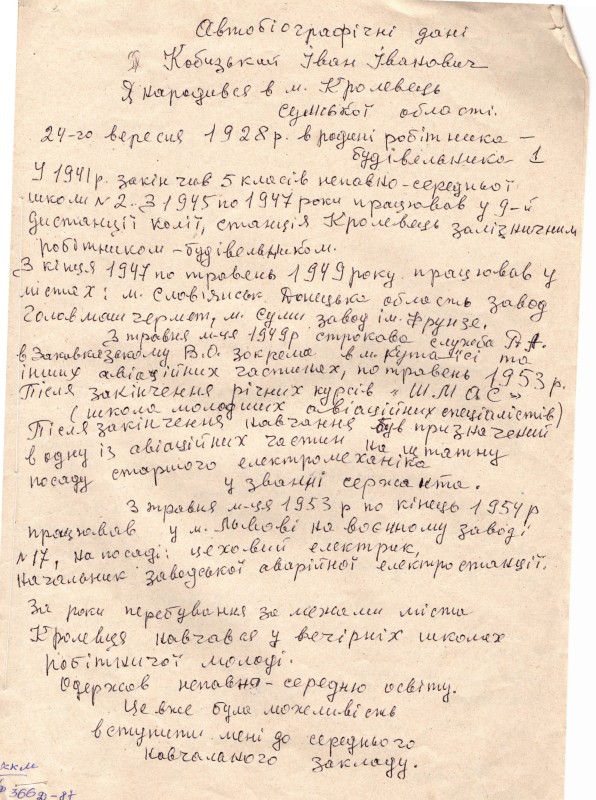 Автобіографічні дані
Кобизький Іван Іванович
Я народився в м. Кролевець
Сумської області.
24-го вересня 1928 р. в родині робітника –
будівельника 1
У 1941 р. закінчив 5 класів неповно-середньої
школи № 2. З 1945 по 1947 роки працював у 9-й
дистанції колії, станція Кролевець залізничним
робітником – будівельником.
З кінця 1947 по травень 1949 року. працював у
містах: м. Слов'янськ Донецька область завод
Головмашчермет, м. Суми завод ім. Фрунзе.
З травня м-ця 1949р строкова служба Р.А.
в Закавказському В.О. зокрема в м. Кутаїсі та
інших авіаційних частинах, по травень 1953 р.
Після закінчення річних курсів "ШМАС"
(школа молодших авіаційних спеціалістів)
Після закінчення навчання був призначений
в одну із авіаційних частин на штатну
посаду старшого електромеханіка
у званні сержанта.
З травня м-ця 1953 р по кінець 1954 р
працював у м. Львові на воєнному заводі
№ 17, на посаді: цеховий електрик,
начальник заводської аварійної електростанції.
За роки перебування за межами міста
Кролевця навчався у вечірніх школах
робітничої молоді.
Одержав неповно-середню освіту.
Це вже була можливість
вступити мені до середнього
навчального закладу.
ККМ
366Д-87